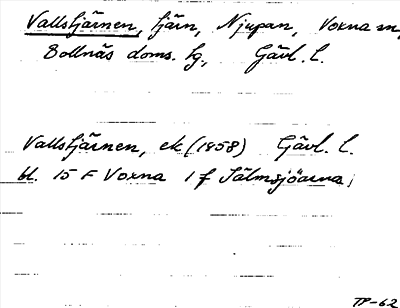 Vallstjärnen, tjärn, Njupan, Voxna sn,
Bollnäs doms. tg, Gävl. l.
Vallstjärnen, ek (1958) Gävl. l.
bl. 15 F Voxna 1 f Sälmsjöarna,
TP-62